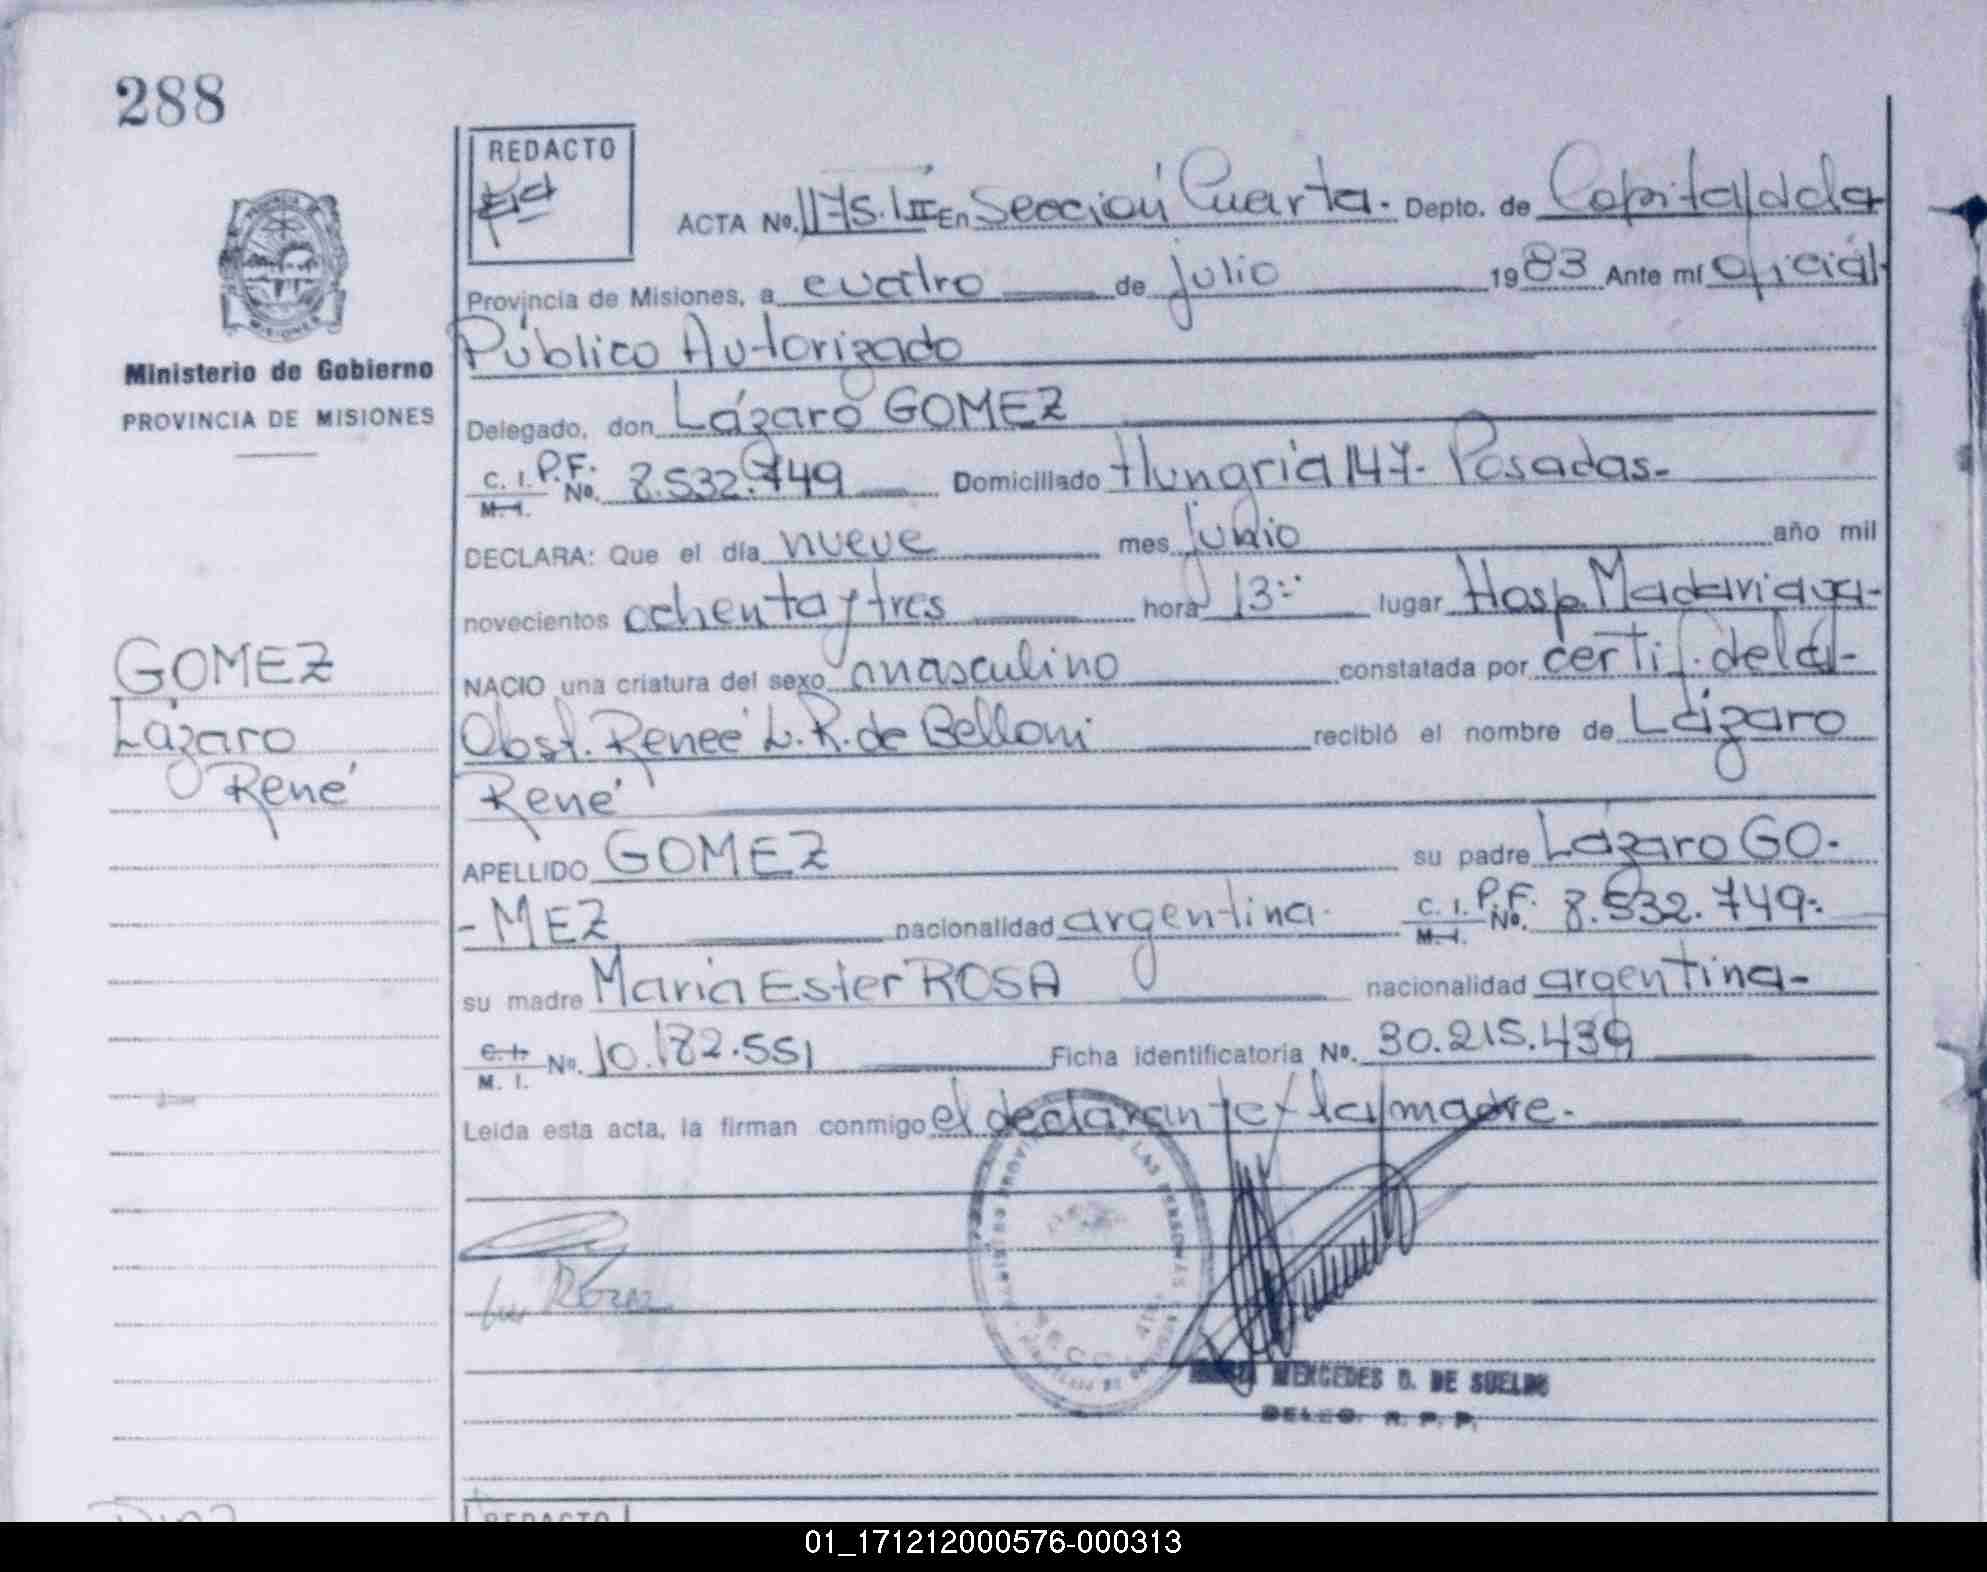 288
REDACTO
ACTA No. 1175.III En Sección Cuarta. Depto. de Capital de la
Provincia de Misiones, a cuatro de julio 1983 Ante mí Oficial
Público Autorizado
Ministerio de Gobierno
PROVINCIA DE MISIONES
Delegado, don Lázaro GOMEZ
C. I. P.F. M. I. No. 8.532.749 Domiciliado Hungría 147- Posadas-
DECLARA: Que el día nueve mes junio año mil
novecientos ochenta y tres hora 13:- lugar Hosp. Madariaga-
NACIO una criatura del sexo masculino constatada por certif. de la
Obst. Reneé L. R. de Belloni recibió el nombre de Lázaro
René
GOMEZ
Lázaro
René
APELLIDO GOMEZ su padre Lázaro GO-
-MEZ nacionalidad argentina- C. I. P.F. M. I. No. 8.532.749-
su madre María Ester ROSA nacionalidad argentina-
C. I. M. I. No. 10.182.551 Ficha identificatoria No. 30.215.439
Leída esta acta, la firman conmigo el declarante y la madre.-
MERCEDES D. DE SUELDO
DELEG. R. P. P.
REDACTO
01_171212000576-000313